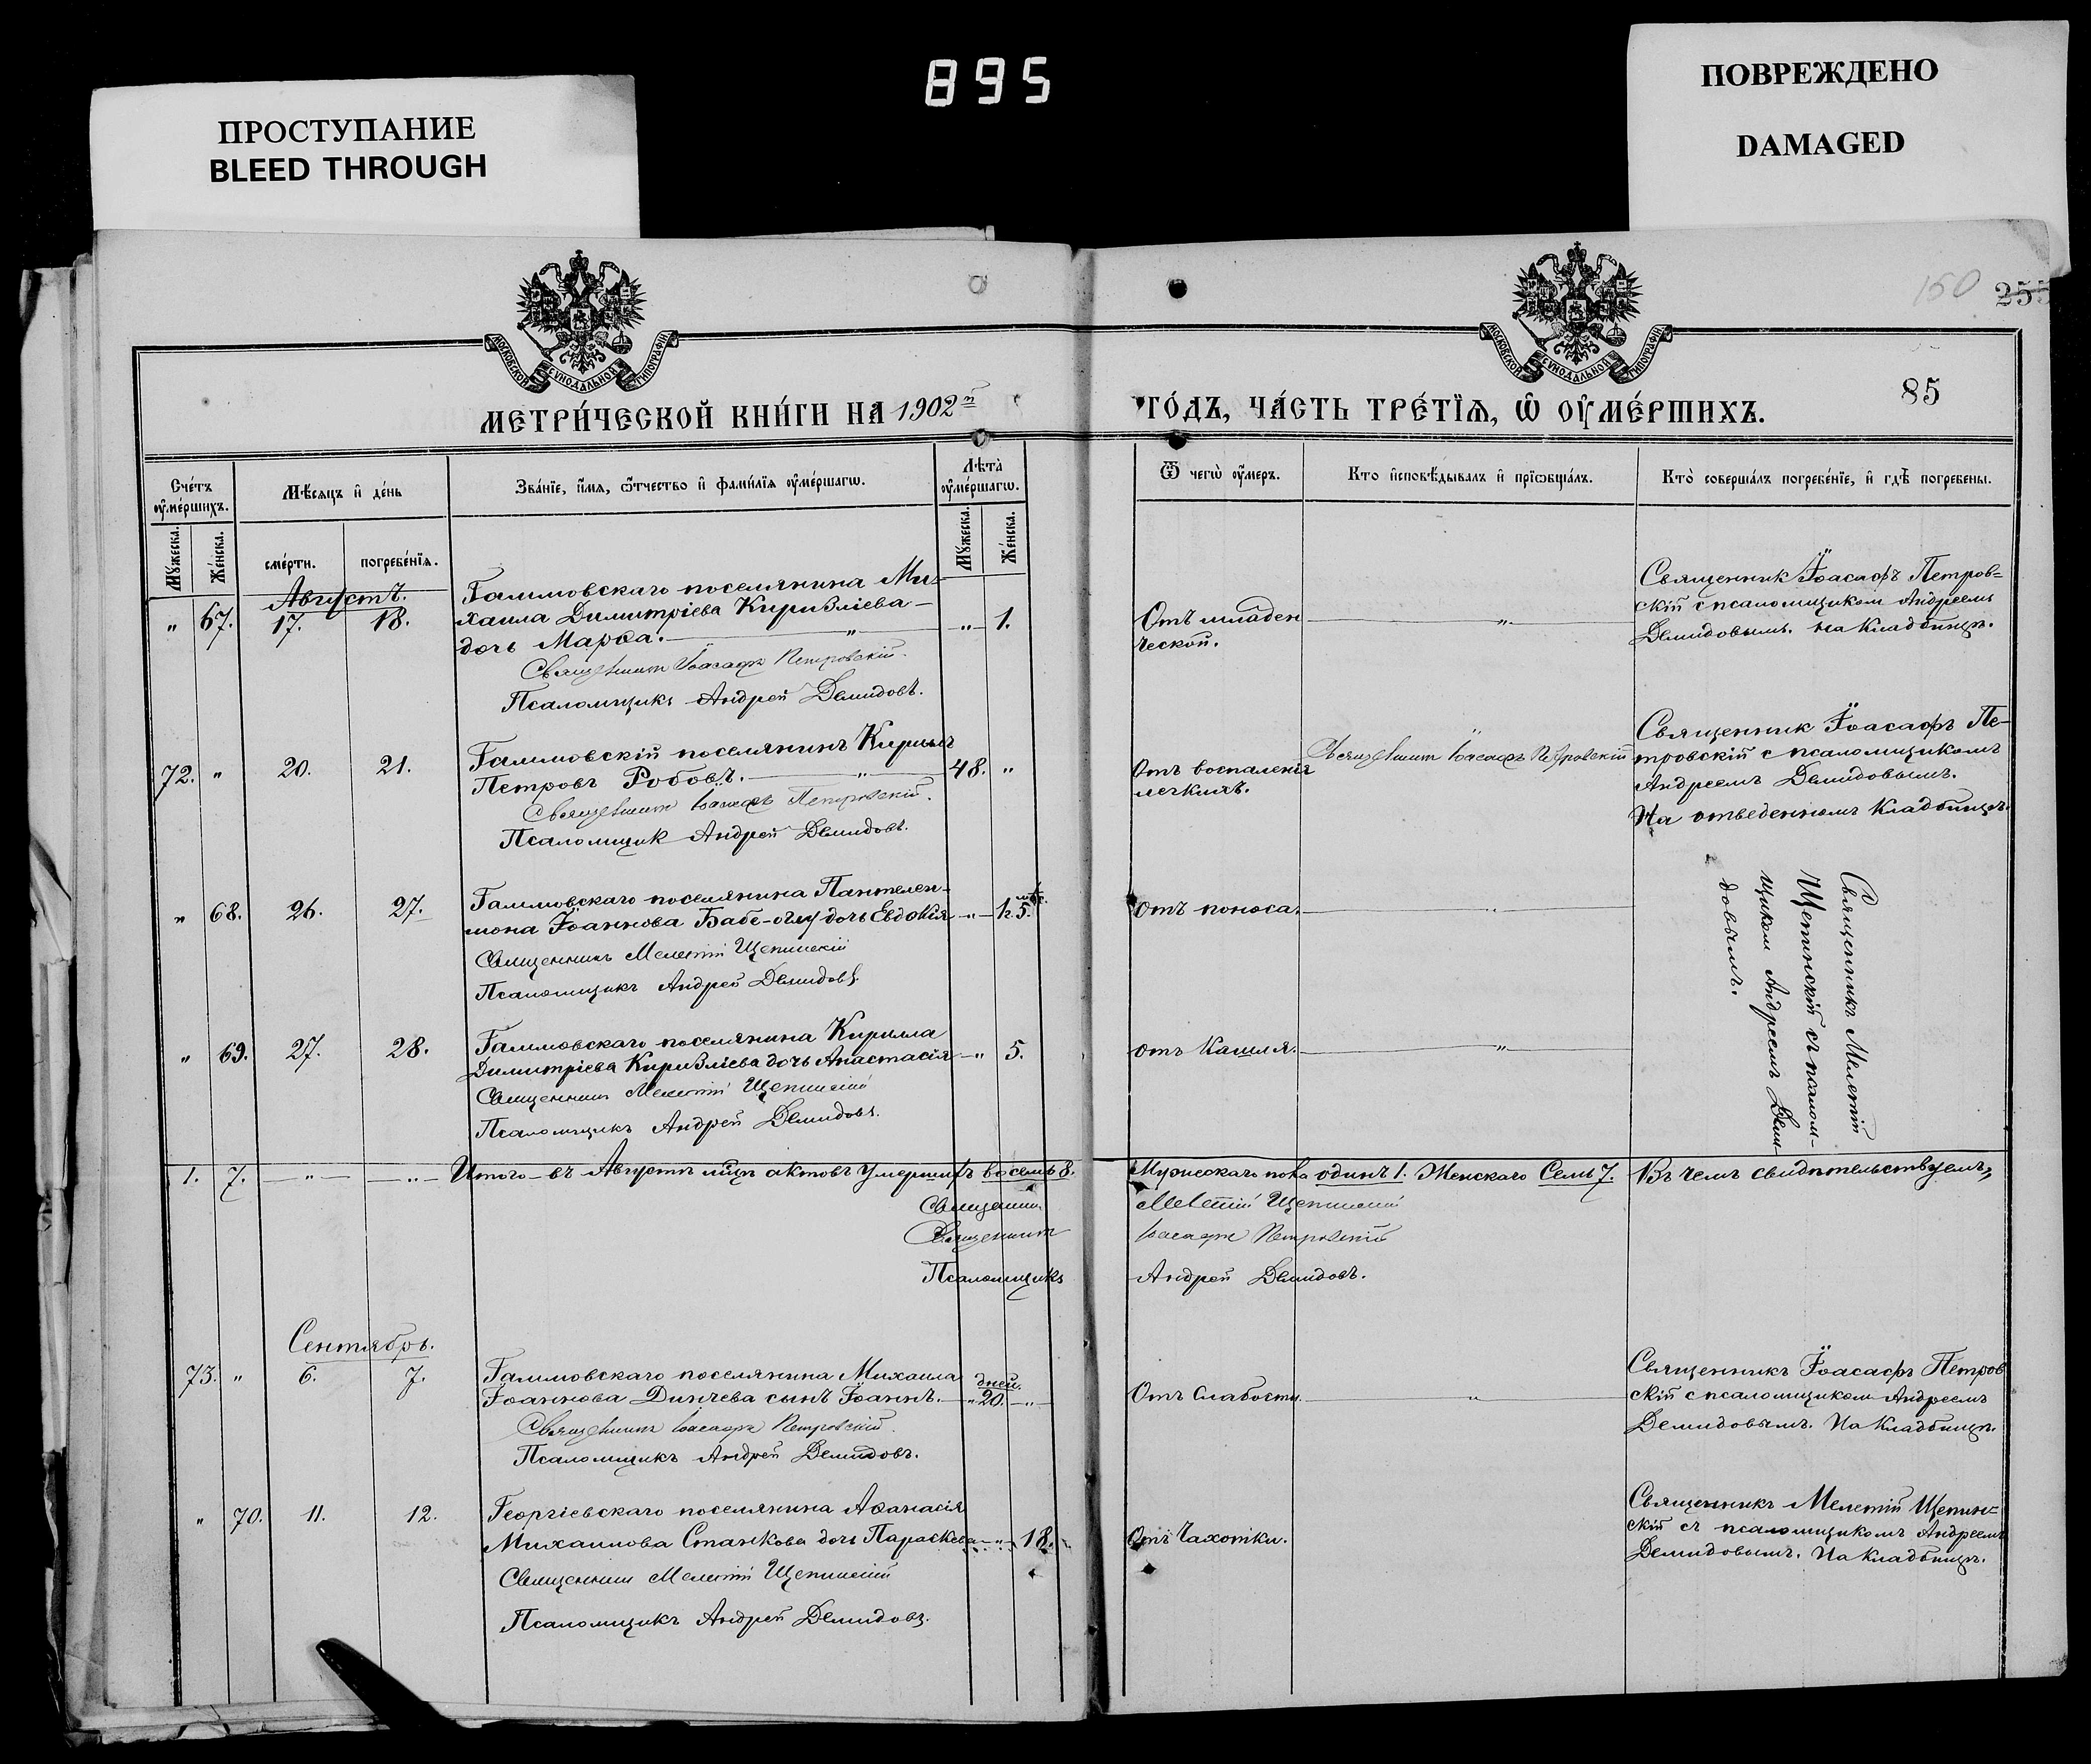 895
ПРОСТУПАНИЕ
BLEED THROUGH
ПОВРЕЖДЕНО
DAMAGED
150 255
85
МОСКОВСКОЙ СѴНОДАЛЬНОЙ ТИПОГРАФІИ
МОСКОВСКОЙ СѴНОДАЛЬНОЙ ТИПОГРАФІИ
МЕТРИ́ЧЕСКОЙ КНИ́ГИ НА 1902й
ГО́ДЪ, ЧА́СТЬ ТРЕ́ТЇѦ, Ѡ ОУМЕ́РШИХЪ.
Сче́тъ оуме́ршихъ.
Мѹжеска.
Же́нска.
Мѣ́сѧцъ и де́нь
сме́рти.
погребе́нїѧ.
Зва́нїе, и́мѧ, ѻ́тчество и фами́лїѧ оуме́ршагѡ.
Лѣта̀ оуме́ршагѡ.
Мѹжеска.
Же́нска.
Ѿ чегѡ̀ оу́меръ.
Кто исповѣ́дывалъ и прїѡбща́лъ.
Кто̀ соверша́лъ погребе́нїе, и гдѣ̀ погребены.
Августъ.
" 67. 17. 18.
Гаимовскаго поселянина Ми-
хаила Димитріева Кириѳліева
дочь Марѳа. — " — 1.
Священникъ Іоасафъ Петровскій.
Псаломщикъ Андрей Демидовъ.
Отъ младен
ческой.
"
Священник Іоасафъ Петров-
скій с псаломщиком Андреемъ
Демидовымъ. на Кладбищѣ.
72. " 20. 21.
Гаимовскій поселянинъ Кириллъ
Петровъ Робовъ. 48. "
Священникъ Іоасафъ Петровскій.
Псаломщик Андрей Демидовъ.
Отъ воспаленія
легкихъ.
Священникъ Іоасафъ Петровскій
Священник Іоасафъ Пе-
тровскій с псаломщикомъ
Андреемъ Демидовымъ.
На отведенномъ Кладбищѣ.
" 68. 26. 27.
Гаимовскаго поселянина Пантелеи-
мона Іоаннова Бабе-оглу дочь Евдокія — " —
Священникъ Мелетій Щепинскій
Псаломщикъ Андрей Демидовъ.
Отъ поноса.
Священникъ Мелетій
Щепинскій съ псалом-
щиком Андреемъ Деми-
довымъ.
" 69. 27. 28.
Гаимовскаго поселянина Кирилла
Димитріева Кириѳліева дочь Анастасія — " 5.
Священникъ Мелетій Щепинскій
Псаломщикъ Андрей Демидовъ.
отъ Кашля.
"
1. 7. — " — — " — Итого — въ Августѣ мцѣ актовъ умершихъ восемь 8.
Мужескаго пола одинъ 1. Женскаго Семь 7. Въ чемъ свидѣтельствуемъ,,
Священникъ Мелетій Щепинскій
Священникъ Іоасафъ Петровскій
Псаломщикъ Андрей Демидовъ.
Сентябрь.
73. " 6. 7.
Гаимовскаго поселянина Михаила
Іоаннова Динчева сынъ Іоаннъ. — дней. 20. — " —
Священникъ Іоасафъ Петровскій.
Псаломщикъ Андрей Демидовъ.
Отъ Слабости.
"
Священникъ Іоасафъ Петров
скій с псаломщиком Андреемъ
Демидовымъ. На Кладбищѣ.
" 70. 11. 12.
Георгіевскаго поселянина Аѳанасія
Михаилова Станкова дочь Параскева — " — 18.
Священникъ Мелетій Щепинскій
Псаломщикъ Андрей Демидовъ.
Отъ Чахотки.
Священникъ Мелетій Щепин-
скій съ псаломщикомъ Андреемъ
Демидовымъ. На Кладбищѣ.